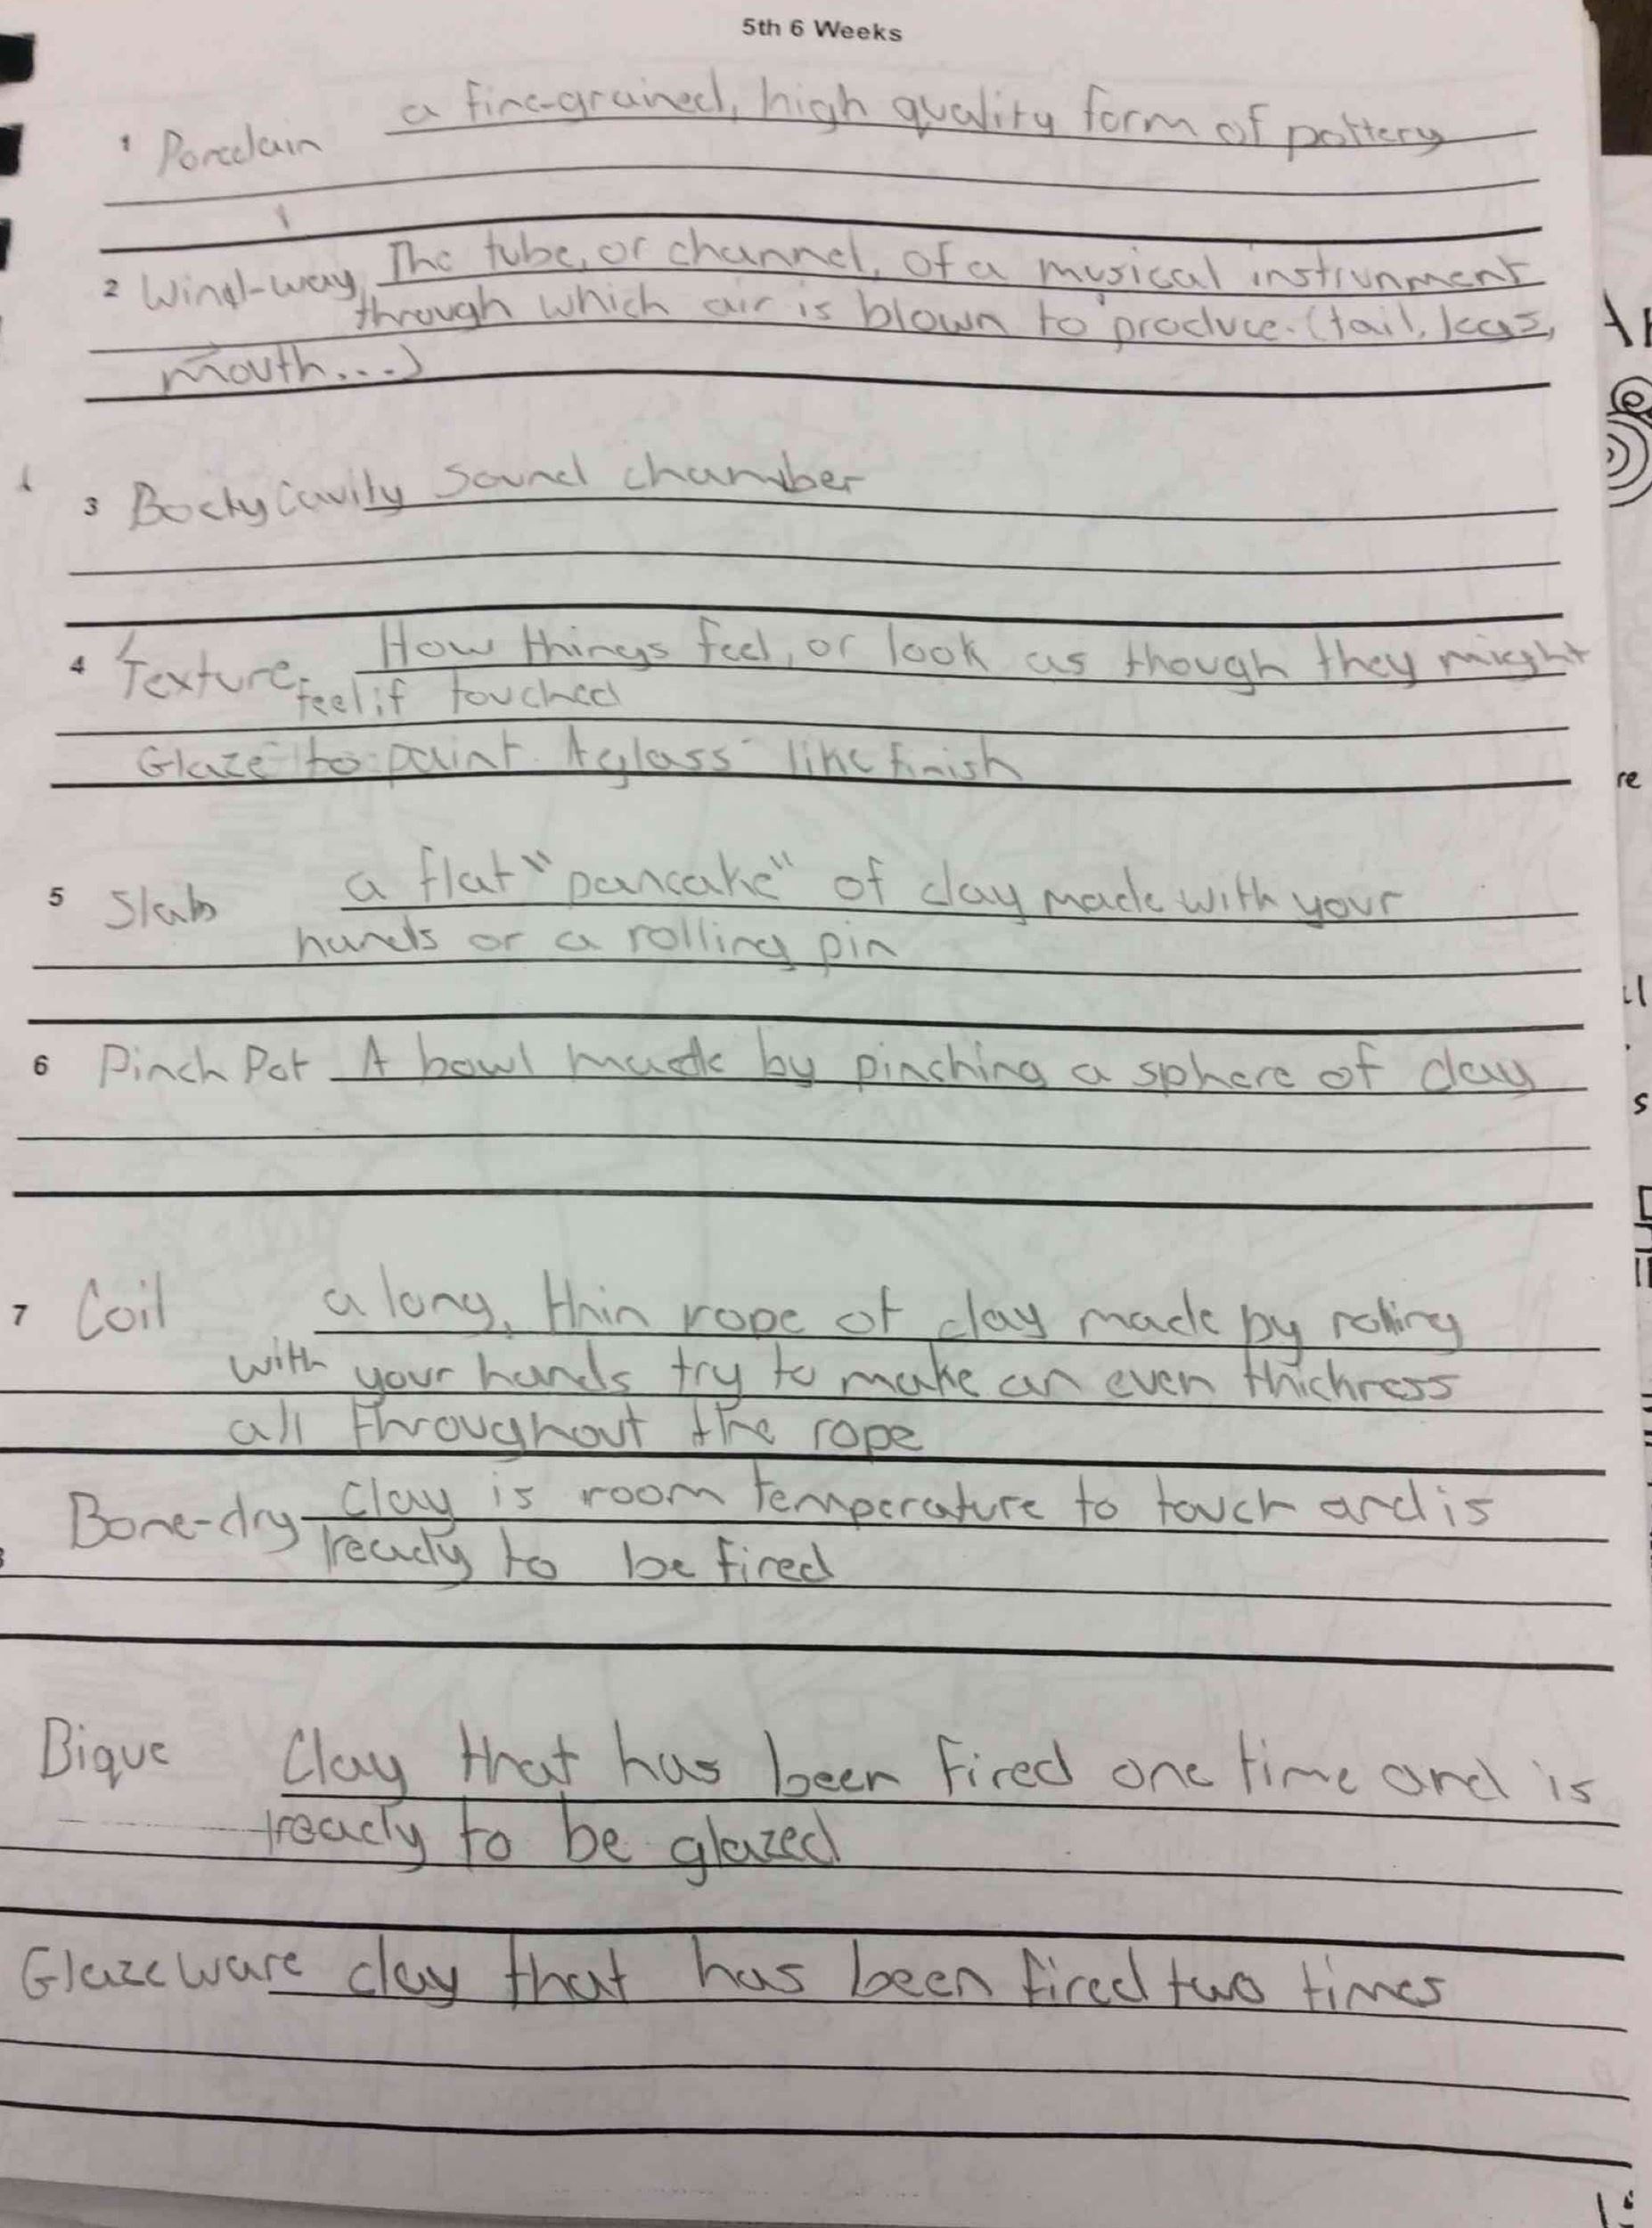 5th 6 Weeks
1 Porcelain a fine-grained, high quality form of pottery
2 Wind-way The tube, or channel, of a musical instrunment
through which air is blown to produce. (tail, legs,
mouth...)
3 Body Cavity Sound chamber
4 Texture- How things feel, or look as though they might
feel if touched
Glaze to paint. A glass like finish
5 Slab a flat "pancake" of clay made with your
hands or a rolling pin
6 Pinch Pot A bowl made by pinching a sphere of clay
7 Coil a long, thin rope of clay made by rolling
with your hands try to make an even thickness
all throughout the rope
Bone-dry clay is room temperature to touch and is
ready to be fired
Bique Clay that has been fired one time and is
ready to be glazed
Glazeware clay that has been fired two times